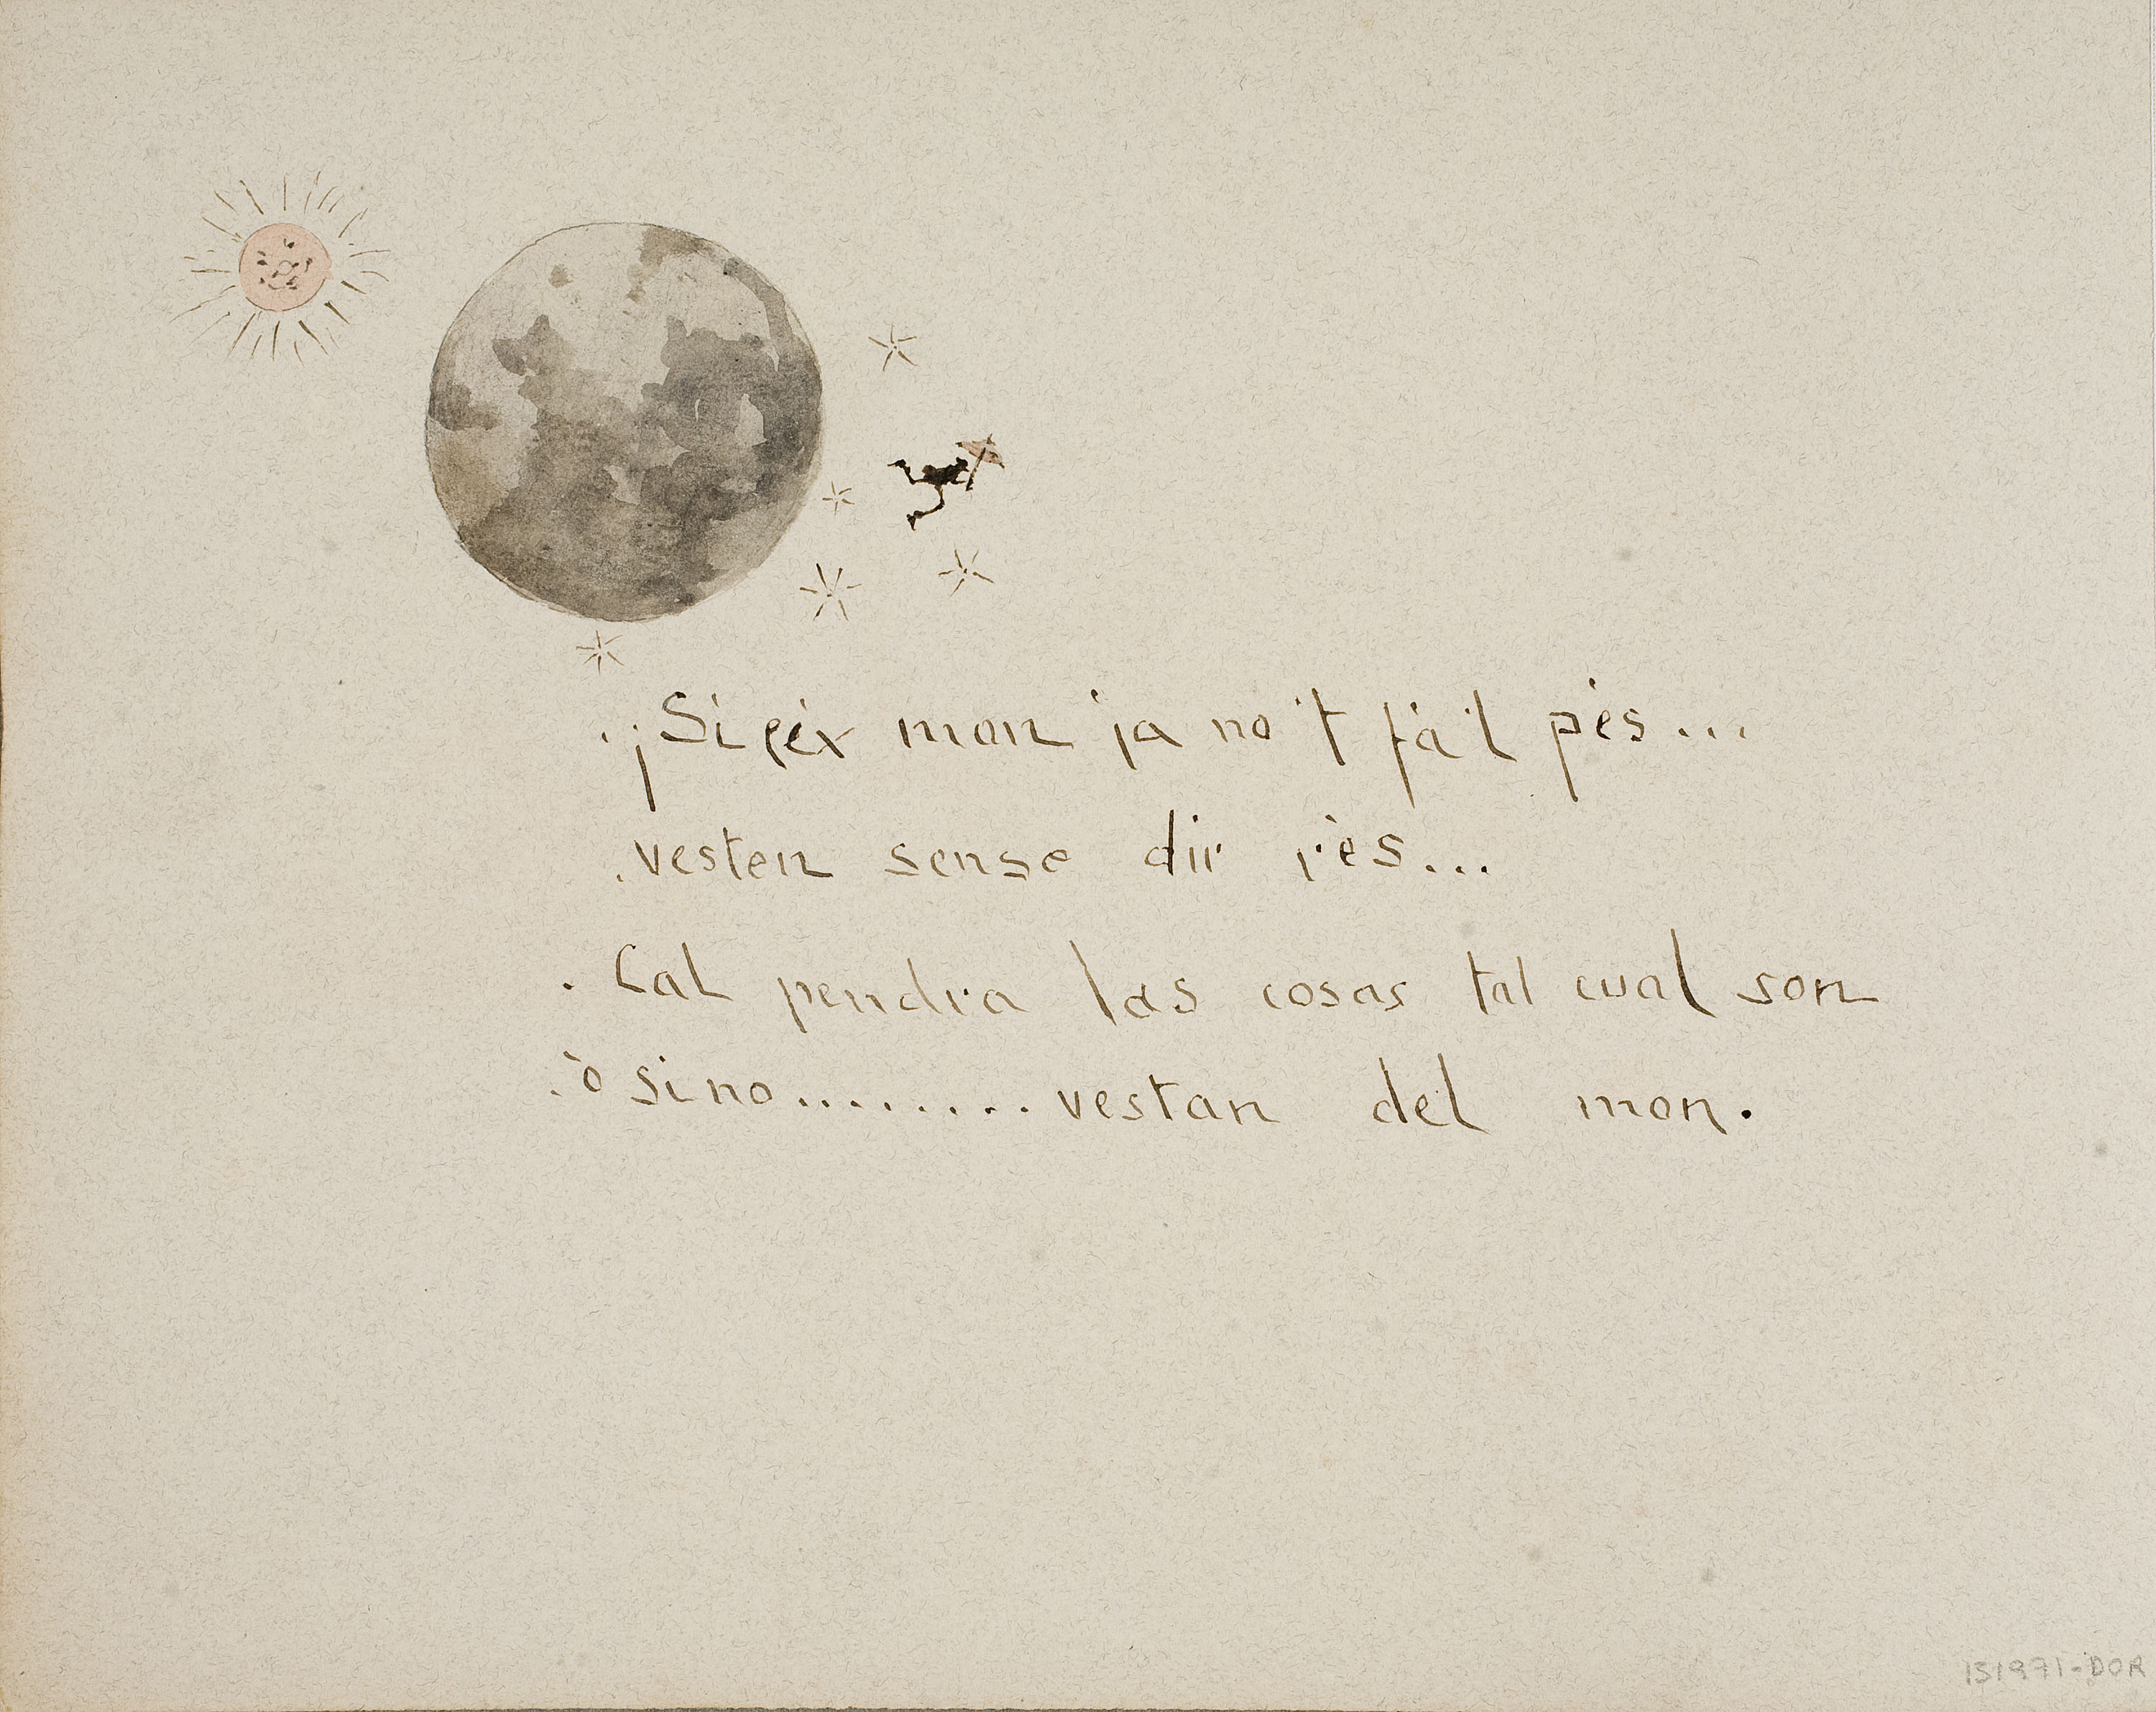 .¡Si eix mon ja no 't fá 'l pès...
.vesten sense dir rès...
. Cal pendra las cosas tal cual son
.ò si no......... vestan del mon.
151971-DOR